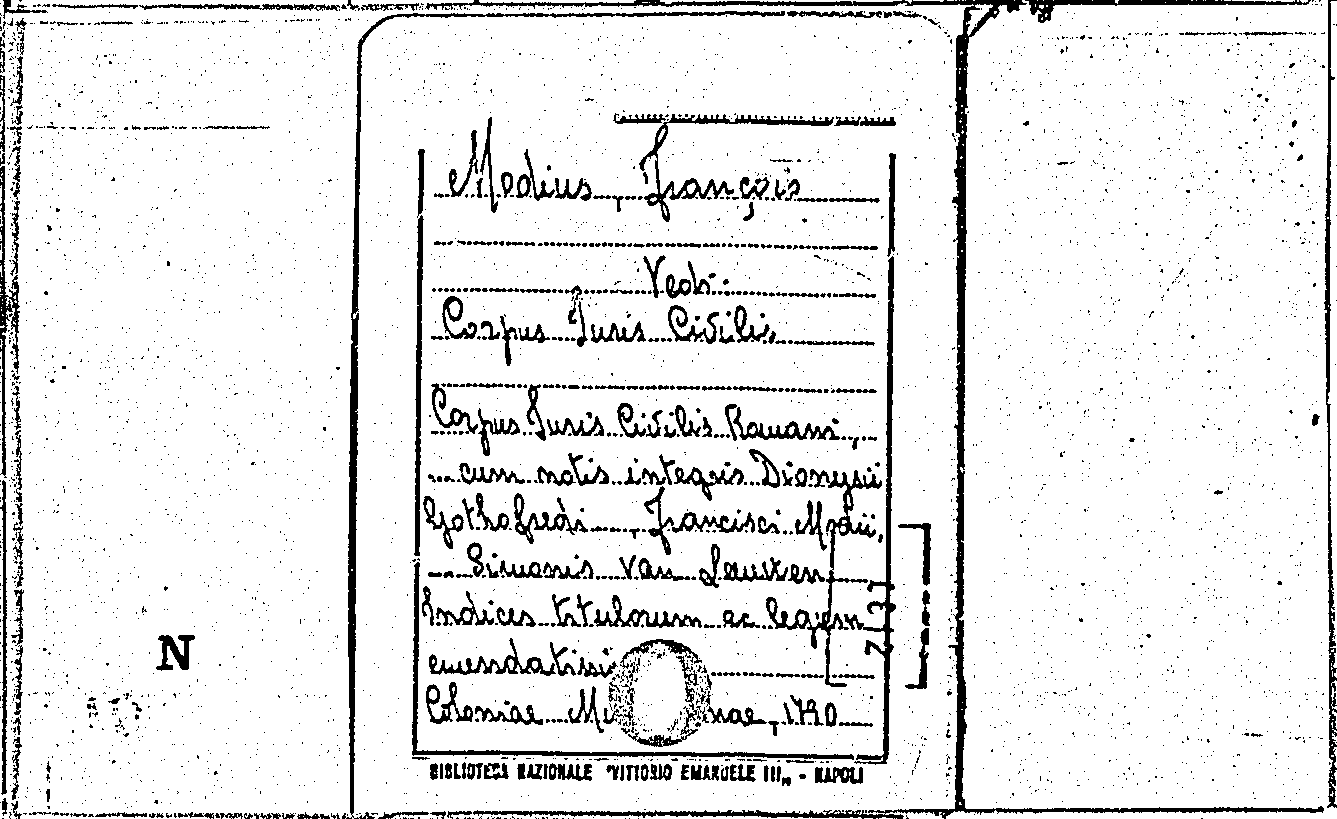 Modius, François
Vedi:
Corpus Juris Civilis
Corpus Juris Civilis Romani,
... cum notis integris Dionysii
Gothofredi ..., Francisci Modii,
... Simonis van Leuwen
Indices titulorum ac legum
emendatissi
Coloniae Mu nae, 1790
N
BIBLIOTECA NAZIONALE "VITTORIO EMANUELE III" - NAPOLI